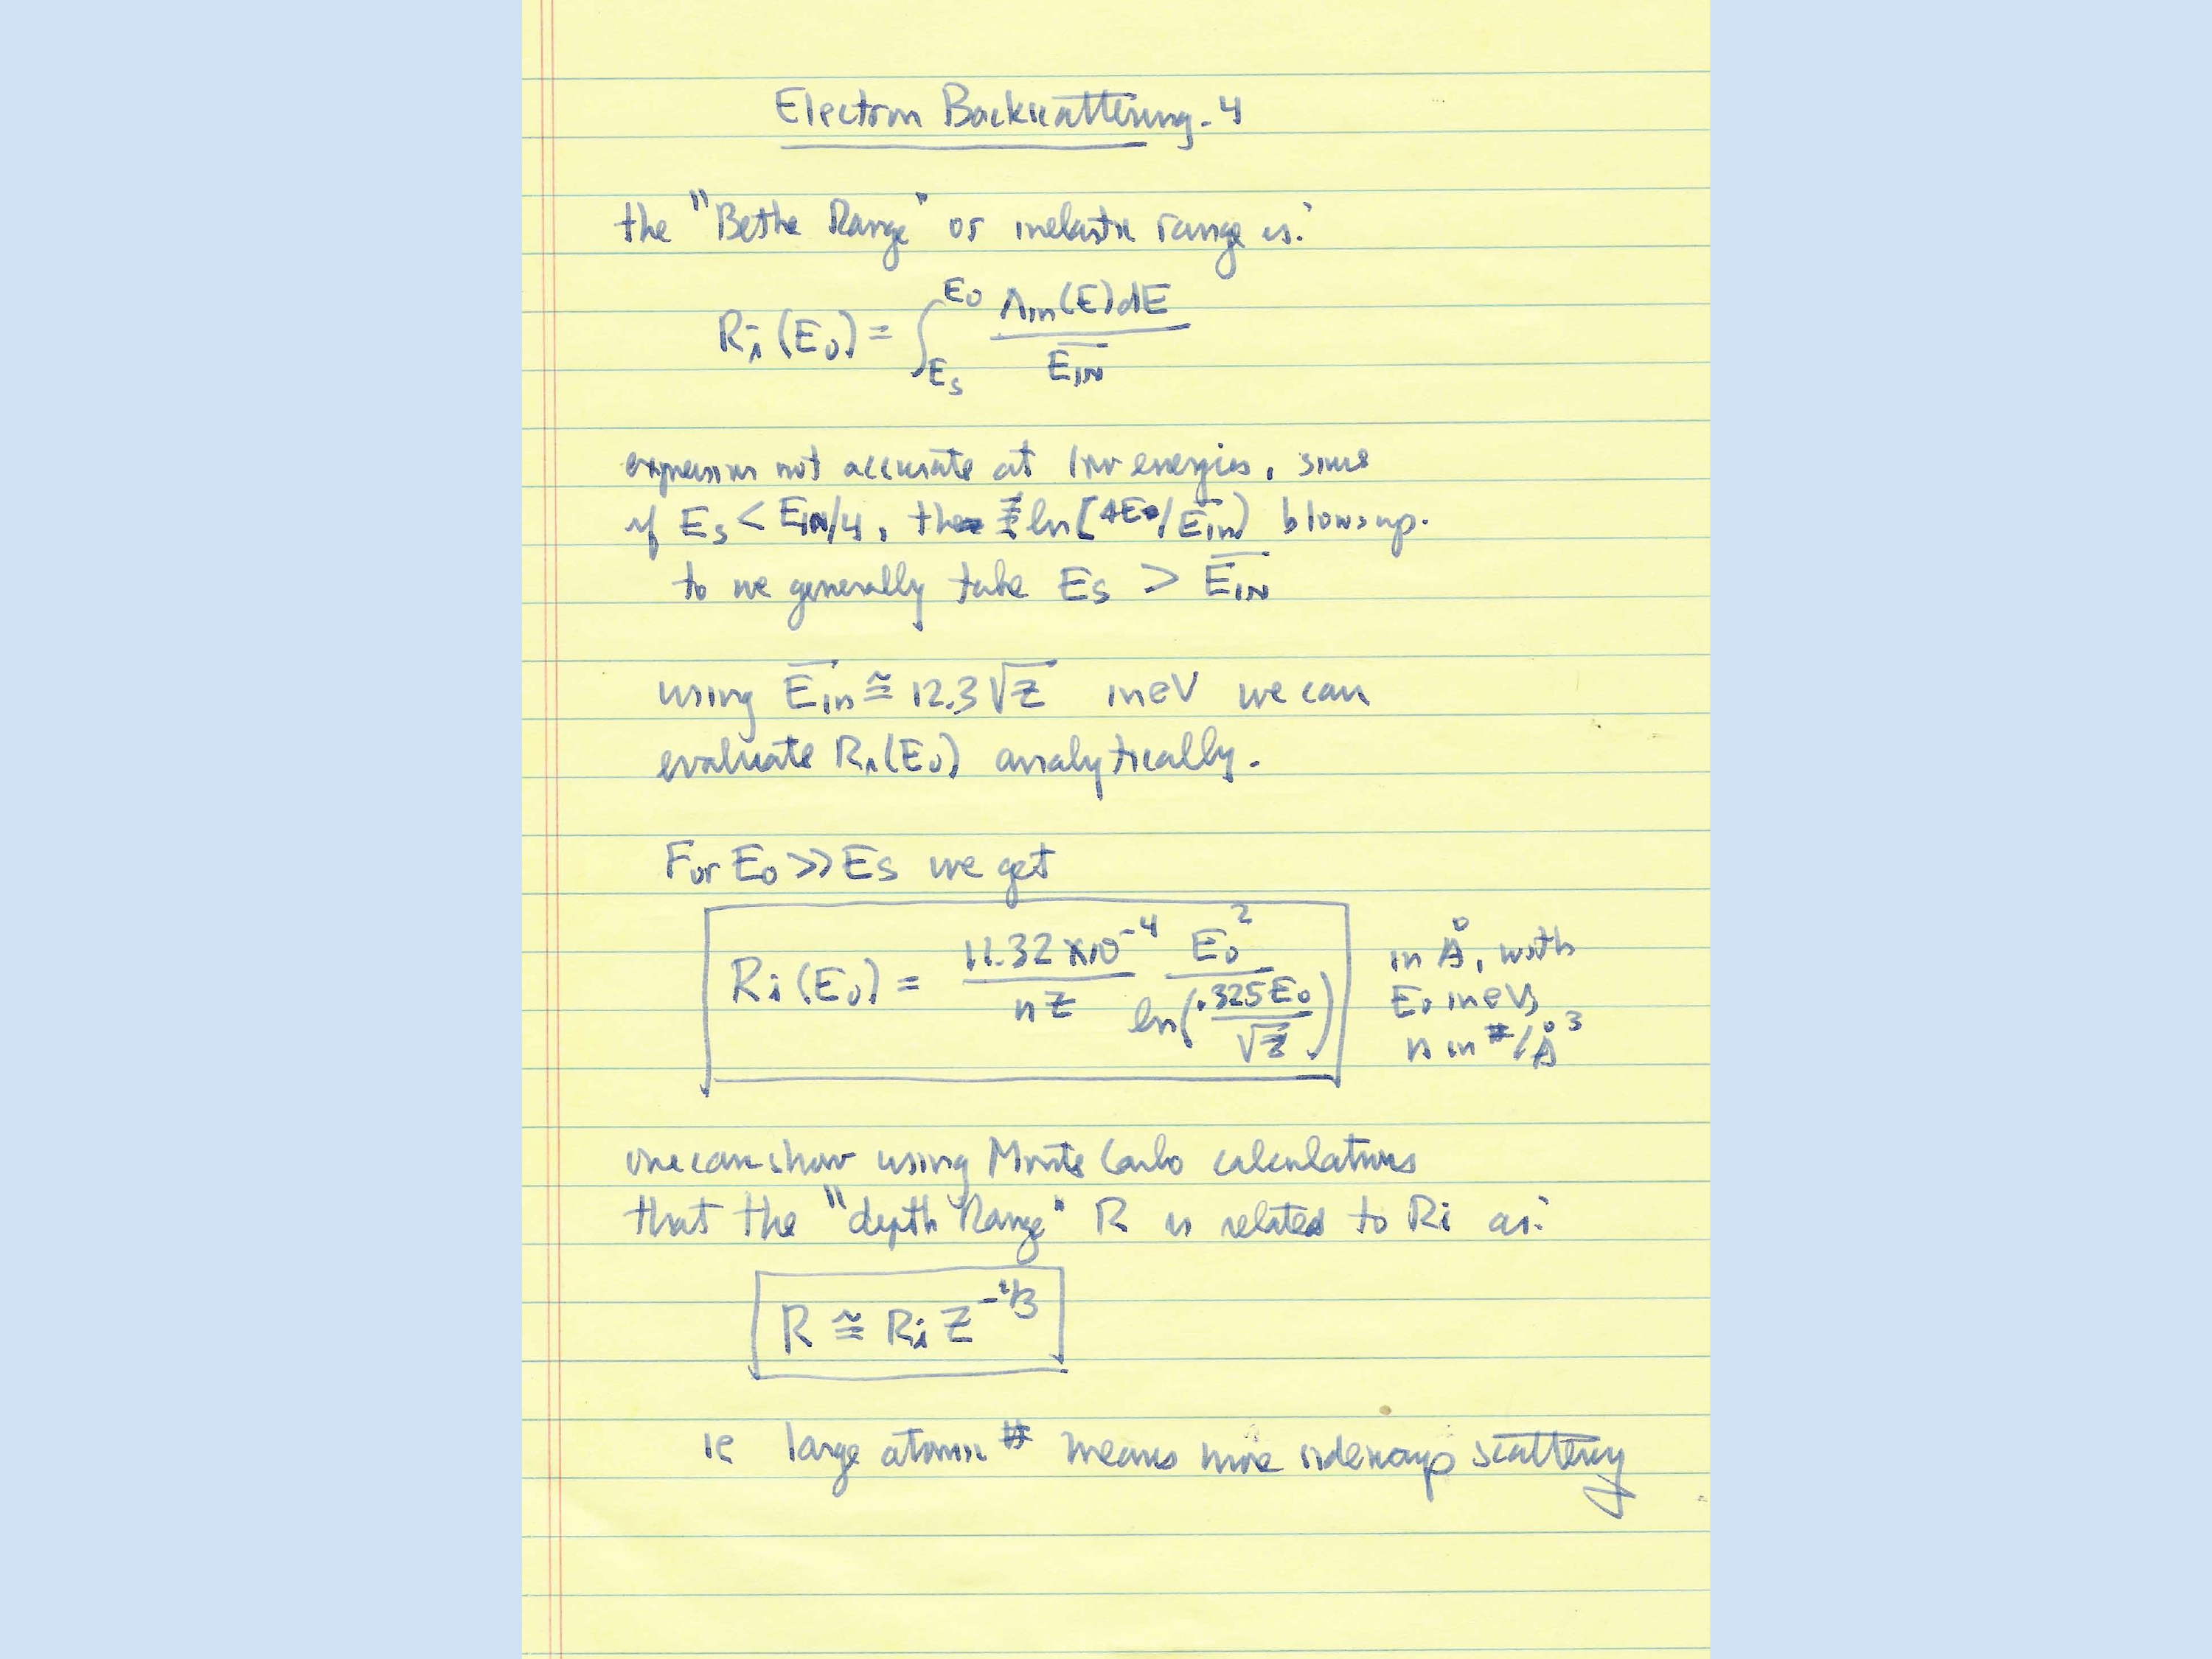 Electron Backscattering-4
the "Bethe Range" or inelastic range is:
Ri(E0) = ∫_{Es}^{E0} Λin(E)dE / \overline{EIN}
expression not accurate at low energies, since
if Es < EIN/4, the ln[4E0/\overline{Ein}) blows up.
to we generally take Es > \overline{EIN}
using \overline{Ein} ≅ 12.3√Z in eV we can
evaluate Ri(E0) analytically.
For E0 >> Es we get
Ri(E0) = 11.32 x10^-4 / nZ  E0^2 / ln(.325E0/√Z)
in Å, with
E0 in eV,
n in #/Å^3
one can show using Monte Carlo calculations
that the "depth Range" R is related to Ri as:
R ≅ Ri Z^-1/3
ie large atomic # means more sideways scattering